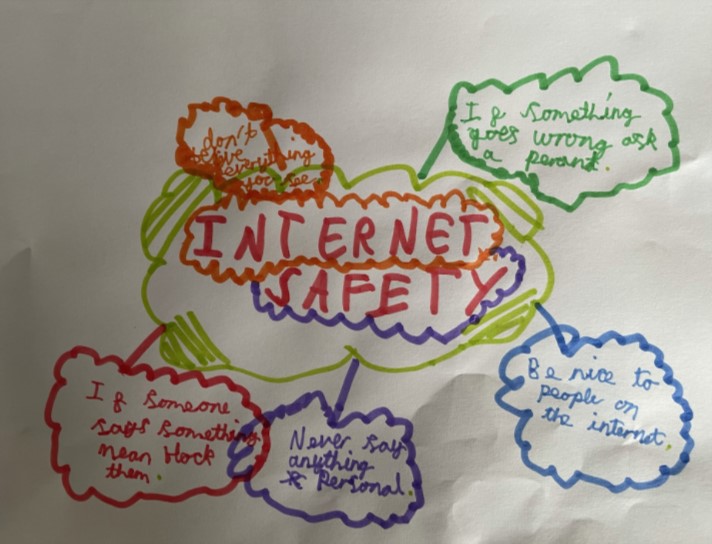 don't
belive
everything
you see
If something
goes wrong ask
a perant.
INTERNET
SAFETY
If someone
says something
mean block
them.
Never say
anything
Personal.
Be nice to
people on
the internet.